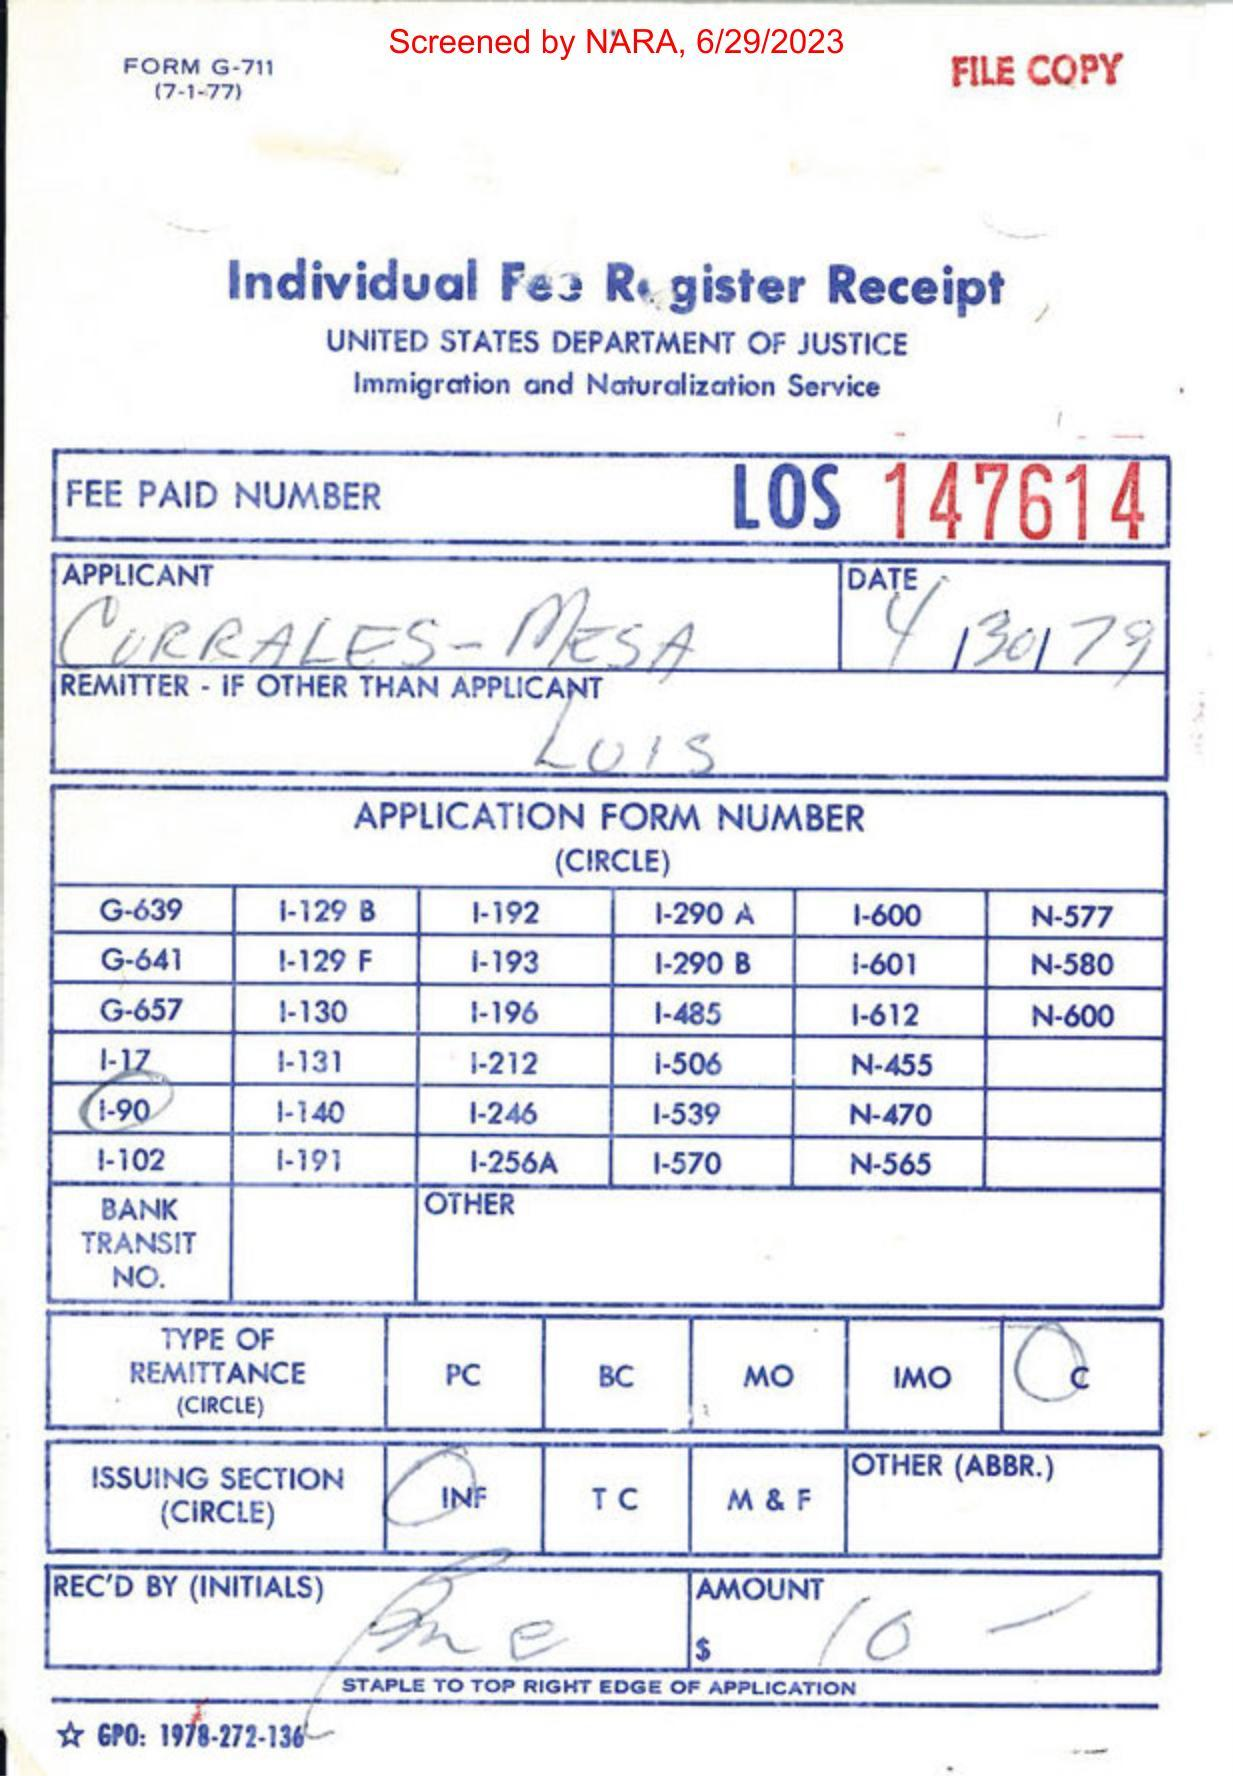 Screened by NARA, 6/29/2023
FORM G-711
(7-1-77)
FILE COPY
Individual Fee Register Receipt
UNITED STATES DEPARTMENT OF JUSTICE
Immigration and Naturalization Service
FEE PAID NUMBER LOS 147614
APPLICANT DATE
CORRALES-MESA 4/30/79
REMITTER - IF OTHER THAN APPLICANT
LUIS
APPLICATION FORM NUMBER
(CIRCLE)
G-639 I-129 B I-192 I-290 A I-600 N-577
G-641 I-129 F I-193 I-290 B I-601 N-580
G-657 I-130 I-196 I-485 I-612 N-600
I-17 I-131 I-212 I-506 N-455
I-90 I-140 I-246 I-539 N-470
I-102 I-191 I-256A I-570 N-565
BANK TRANSIT NO. OTHER
TYPE OF REMITTANCE (CIRCLE) PC BC MO IMO C
ISSUING SECTION (CIRCLE) INF T C M & F OTHER (ABBR.)
REC'D BY (INITIALS) AMOUNT
$ 10 —
STAPLE TO TOP RIGHT EDGE OF APPLICATION
☆ GPO: 1978-272-136